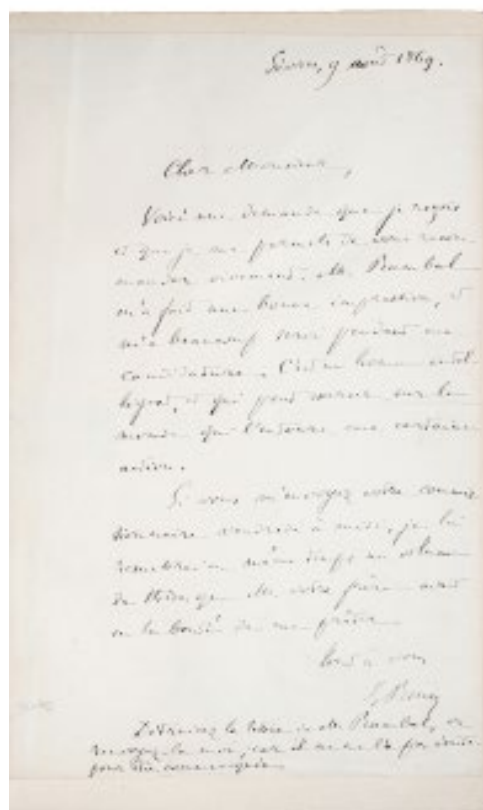 Sèvres, 9 août 1869.
Cher Monsieur,
Voici une demande que je reçois
et que je me permets de vous recom-
mander vivement. M. Rambal
m'a fait une bonne impression, et
m'a beaucoup servi pendant ma
candidature. C'est un homme intel-
ligent, et qui peut exercer sur le
monde qui l'entoure une certaine
action.
Si vous m'envoyez votre commis-
sionnaire vendredi à midi, je lui
remettrai en même temps un volume
de M. votre frère avait
eu la bonté de me prêter.
Tout à vous
E. Renan
Détruisez la lettre de M. Rambal, ou
renvoyez-la moi, car il ne me l'a pas écrite
pour être communiquée.